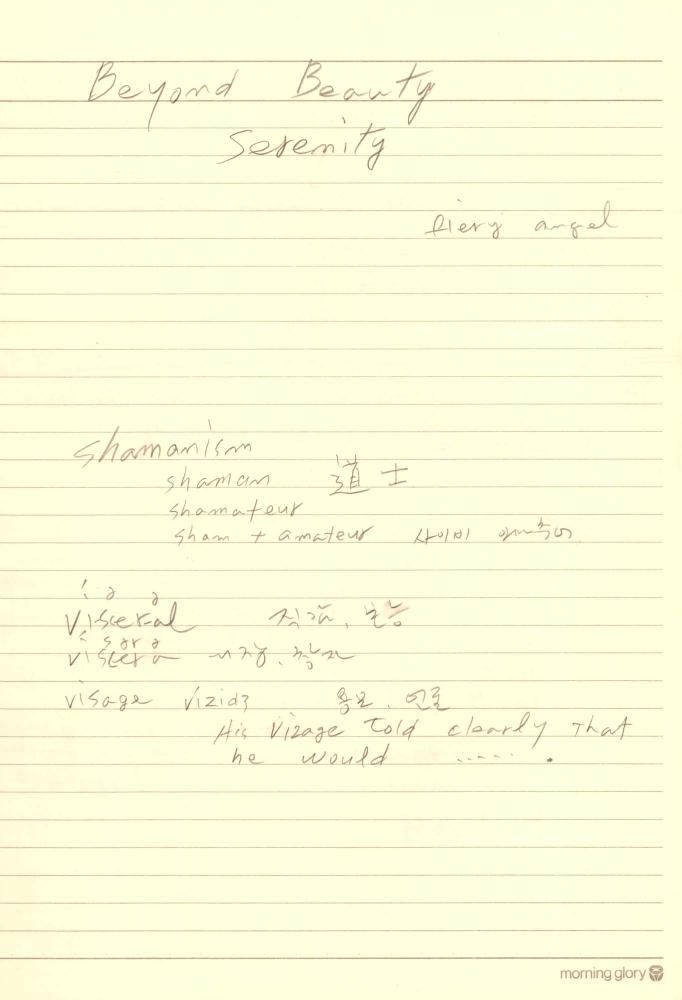 Beyond Beauty
Serenity
fiery angel
shamanism
shaman 道士
shamateur
sham + amateur 사이비 아마추어
í ə ə
visceral 직감, 본능
viscera 내장, 창자
visage vízidʒ 용모, 얼굴
His vizage told clearly that
he would ..... .
morning glory